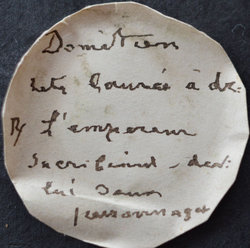 Domitien
tete laurée à dr.
R/ l'empereur
sacrifiant - devt
lui deux
personnages